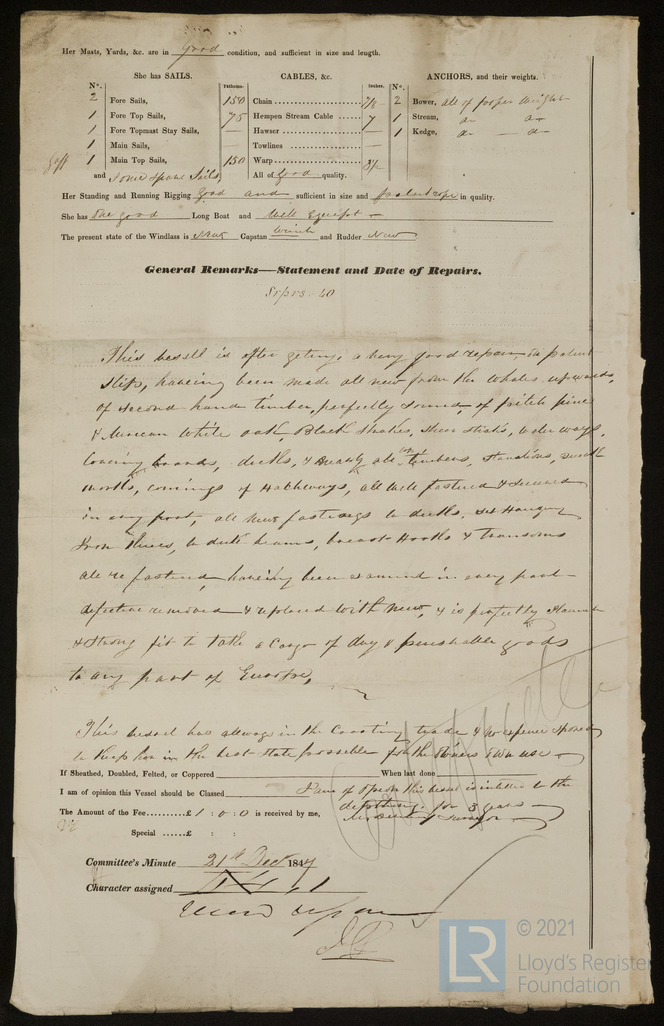 Her Masts, Yards, &c. are in good condition, and sufficient in size and length.
She has SAILS. CABLES, &c. ANCHORS, and their weights.
N°. Fathoms. Inches. N°.
2 Fore Sails, 150 Chain 7/8 2 Bower, all of proper weight
1 Fore Top Sails, 75 Hempen Stream Cable 7 1 Stream, do do
1 Fore Topmast Stay Sails, — Hawser — 1 Kedge, do — do
1 Main Sails, — Towlines —
Gaff 1 Main Top Sails, 150 Warp
and some spare Sails, All of good quality.
Her Standing and Running Rigging good and sufficient in size and in quality.
She has One good Long Boat and well equipt
The present state of the Windlass is New Capstan Winch and Rudder New
General Remarks—Statement and Date of Repairs.
This vessell is after geting a very good repair patent
Slip, haveing been made all new from the Whales upwards,
of second hand timber, perfectly sound, of pitch pine
& American White oak, Black Strakes, Sheer Straks, water ways,
decks, timbers, Stantions,
comings of Hatchways, all well fastened & secured
in every part, all new fastnings to decks, six Hanging
Iron Knees, to deck beams, breast Hooks & transoms
all re fastened, haveing been examined in every part
defective removed & replaced with new, & is perfectly Staunch
& Strong fit to take a Cargo of dry & perishable goods
to any part of Europe,
This vessel has allways in the Coasting trade & no expence spared
to keep her in the best state possible for the owners own use
If Sheathed, Doubled, Felted, or Coppered When last done
I am of opinion this vessel is intitled to the
I am of opinion this Vessel should be Classed
for 3 years
The Amount of the Fee......£ 1 : 0 : 0 is received by me,
Surveyor
Special ......£ : :
Committee's Minute 21st Dec 1847
Character assigned
© 2021
LR Lloyd's Register
Foundation